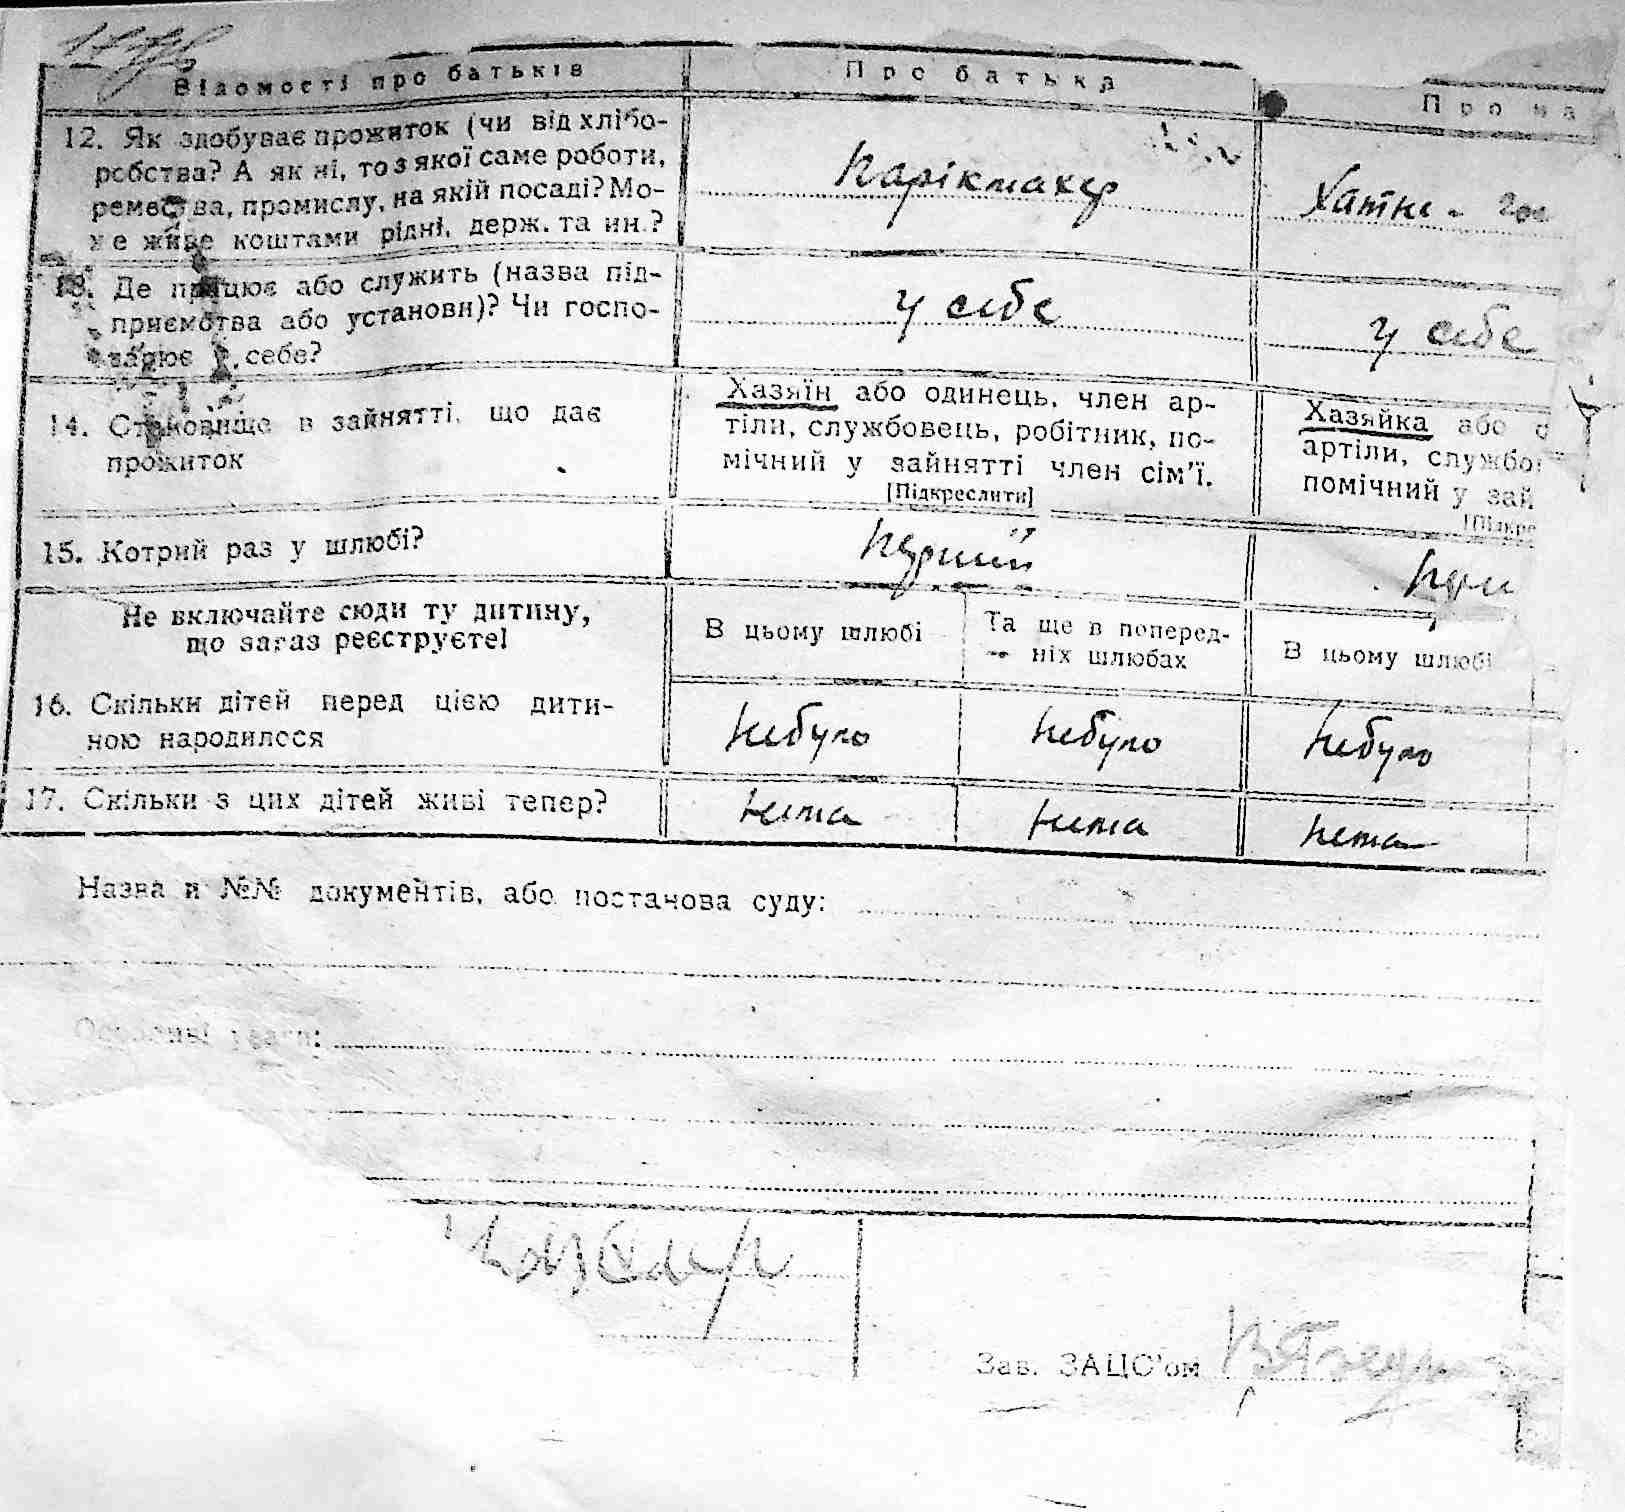 Відомості про батьків
Про батька
Про ма
12. Як здобуває прожиток (чи від хлібо-
робства? А як ні, то з якої саме роботи,
ремества, промислу, на якій посаді? Мо-
же живе коштами рідні, держ. та ин.?
Парікмахер
Хатнє - гос
13. Де працює або служить (назва під-
приємства або установи)? Чи госпо-
дарює у себе?
у себе
у себе
14. Становище в зайнятті, що дає
прожиток
Хазяїн або одинець, член ар-
тіли, службовець, робітник, по-
мічний у зайнятті член сім'ї.
[Підкреслити]
Хазяйка або о
артіли, службо
помічний у зай
[Підкре
15. Котрий раз у шлюбі?
перший
пер
Не включайте сюди ту дитину,
що зараз реєструєте!
В цьому шлюбі
Та ще в поперед-
ніх шлюбах
В цьому шлюбі
16. Скільки дітей перед цією дити-
ною народилося
небуло
небуло
небуло
17. Скільки з цих дітей живі тепер?
нема
нема
нема
Назва й №№ документів, або постанова суду:
Особливі уваги:
Зав. ЗАЦС'ом